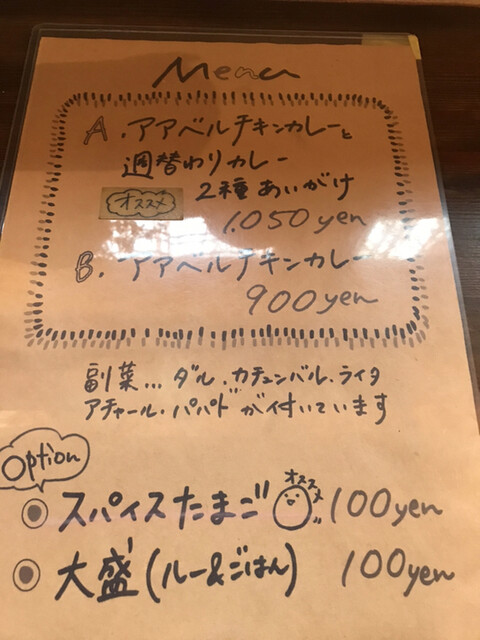 Menu
A. アアベルチキンカレーと
週替わりカレー
オススメ
2種あいがけ
1.050yen
B. アアベルチキンカレー
900yen
副菜... ダル.カチュンバル.ライタ
アチャール.パパドが付いています
Option
スパイスたまご オススメ 100yen
大盛(ルー&ごはん) 100yen